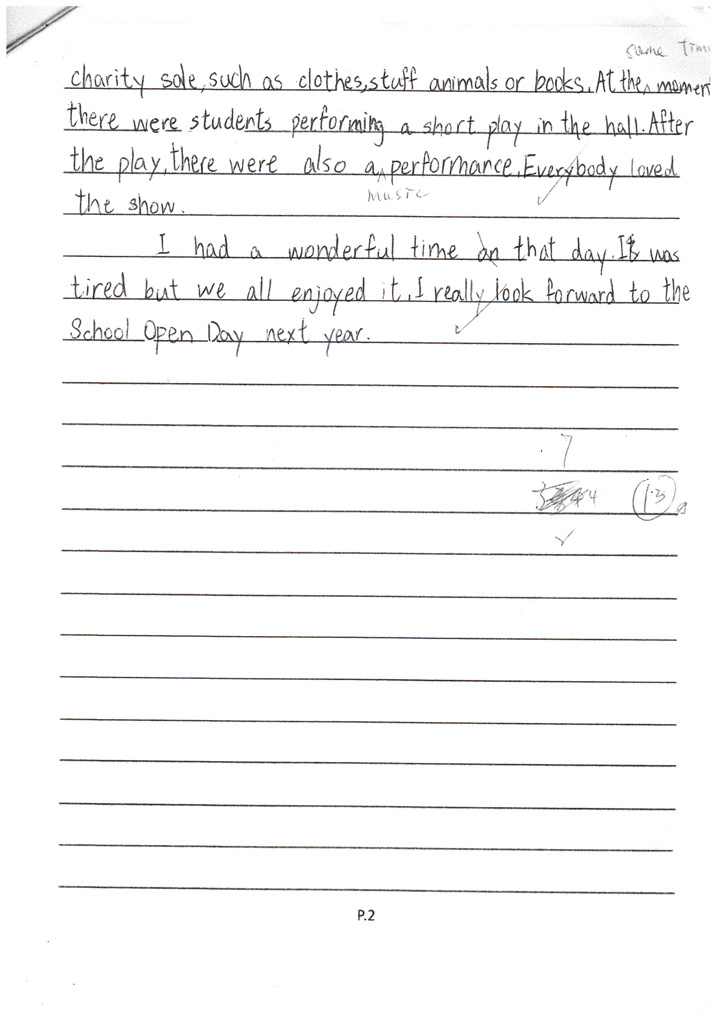 same Time
charity sale, such as clothes, stuff animals or books. At the ^ momen
there were students performing a short play in the hall. After
the play, there were also a ^ performance. Everybody loved
music
the show.
I had a wonderful time on that day. It was
tired but we all enjoyed it. I really look forward to the
School Open Day next year.
7
4
13
P.2